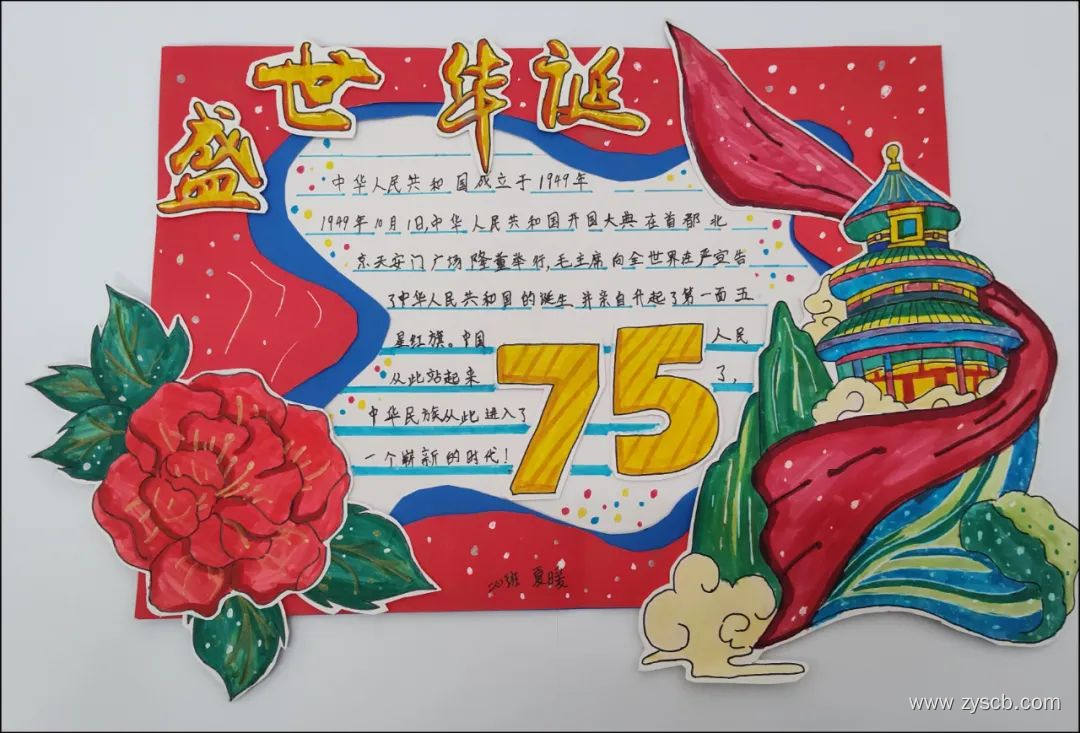 盛世华诞
中华人民共和国成立于1949年
1949年10月1日,中华人民共和国开国大典在首都北
京天安门广场隆重举行,毛主席向全世界庄严宣告
了中华人民共和国的诞生并亲自升起了第一面五
星红旗。中国人民
从此站起来了,
中华民族从此进入了
一个崭新的时代!
75
班 夏暖
www.zyscb.com